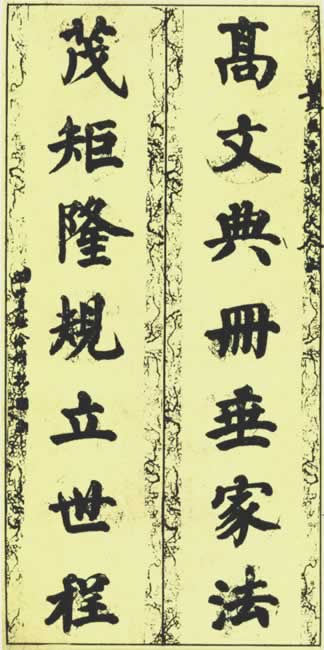 高文典冊垂家法
茂矩隆規立世程